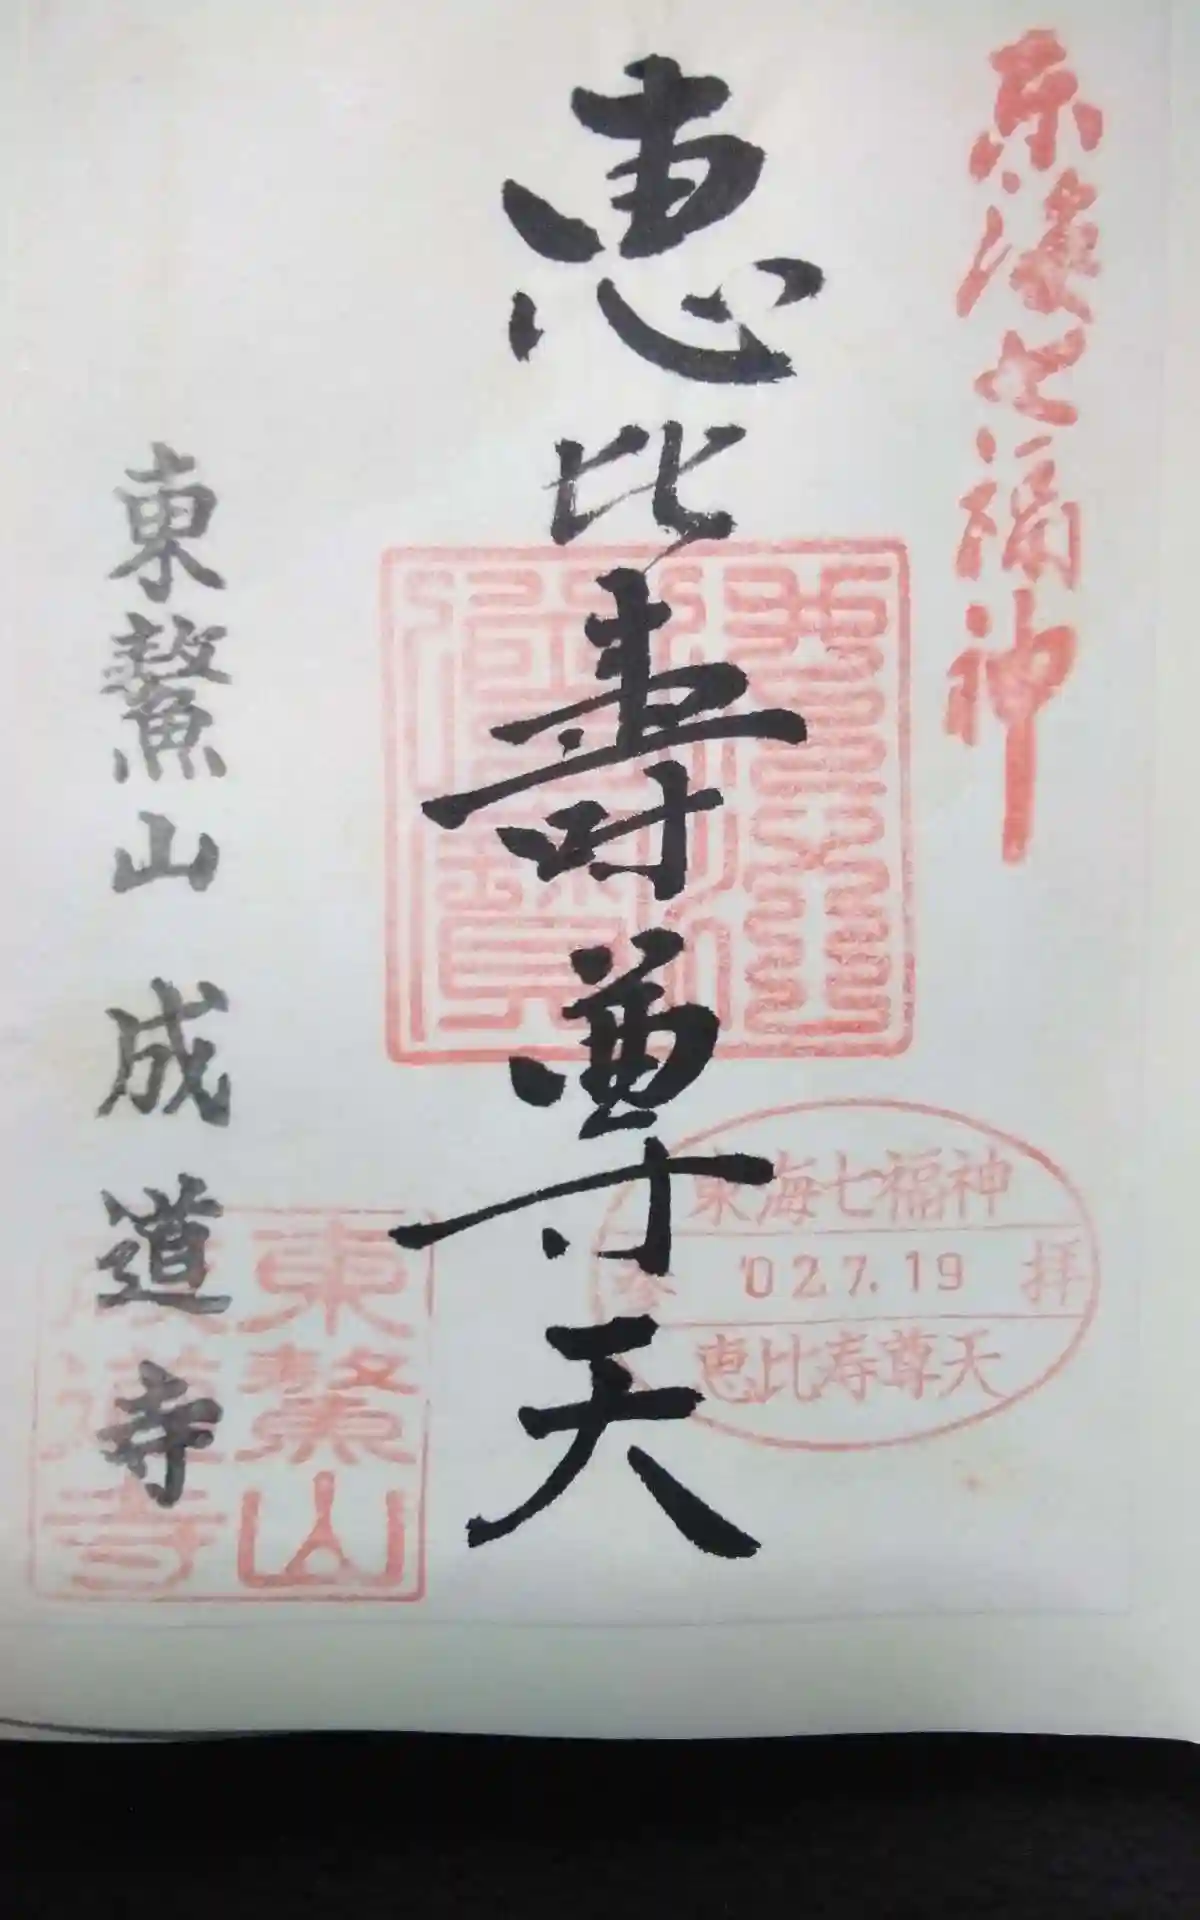 東海七福神
恵比寿尊天
東海七福神
参 '02.7.19 拝
恵比寿尊天
東鰲山 成道寺
東鰲山
成道寺